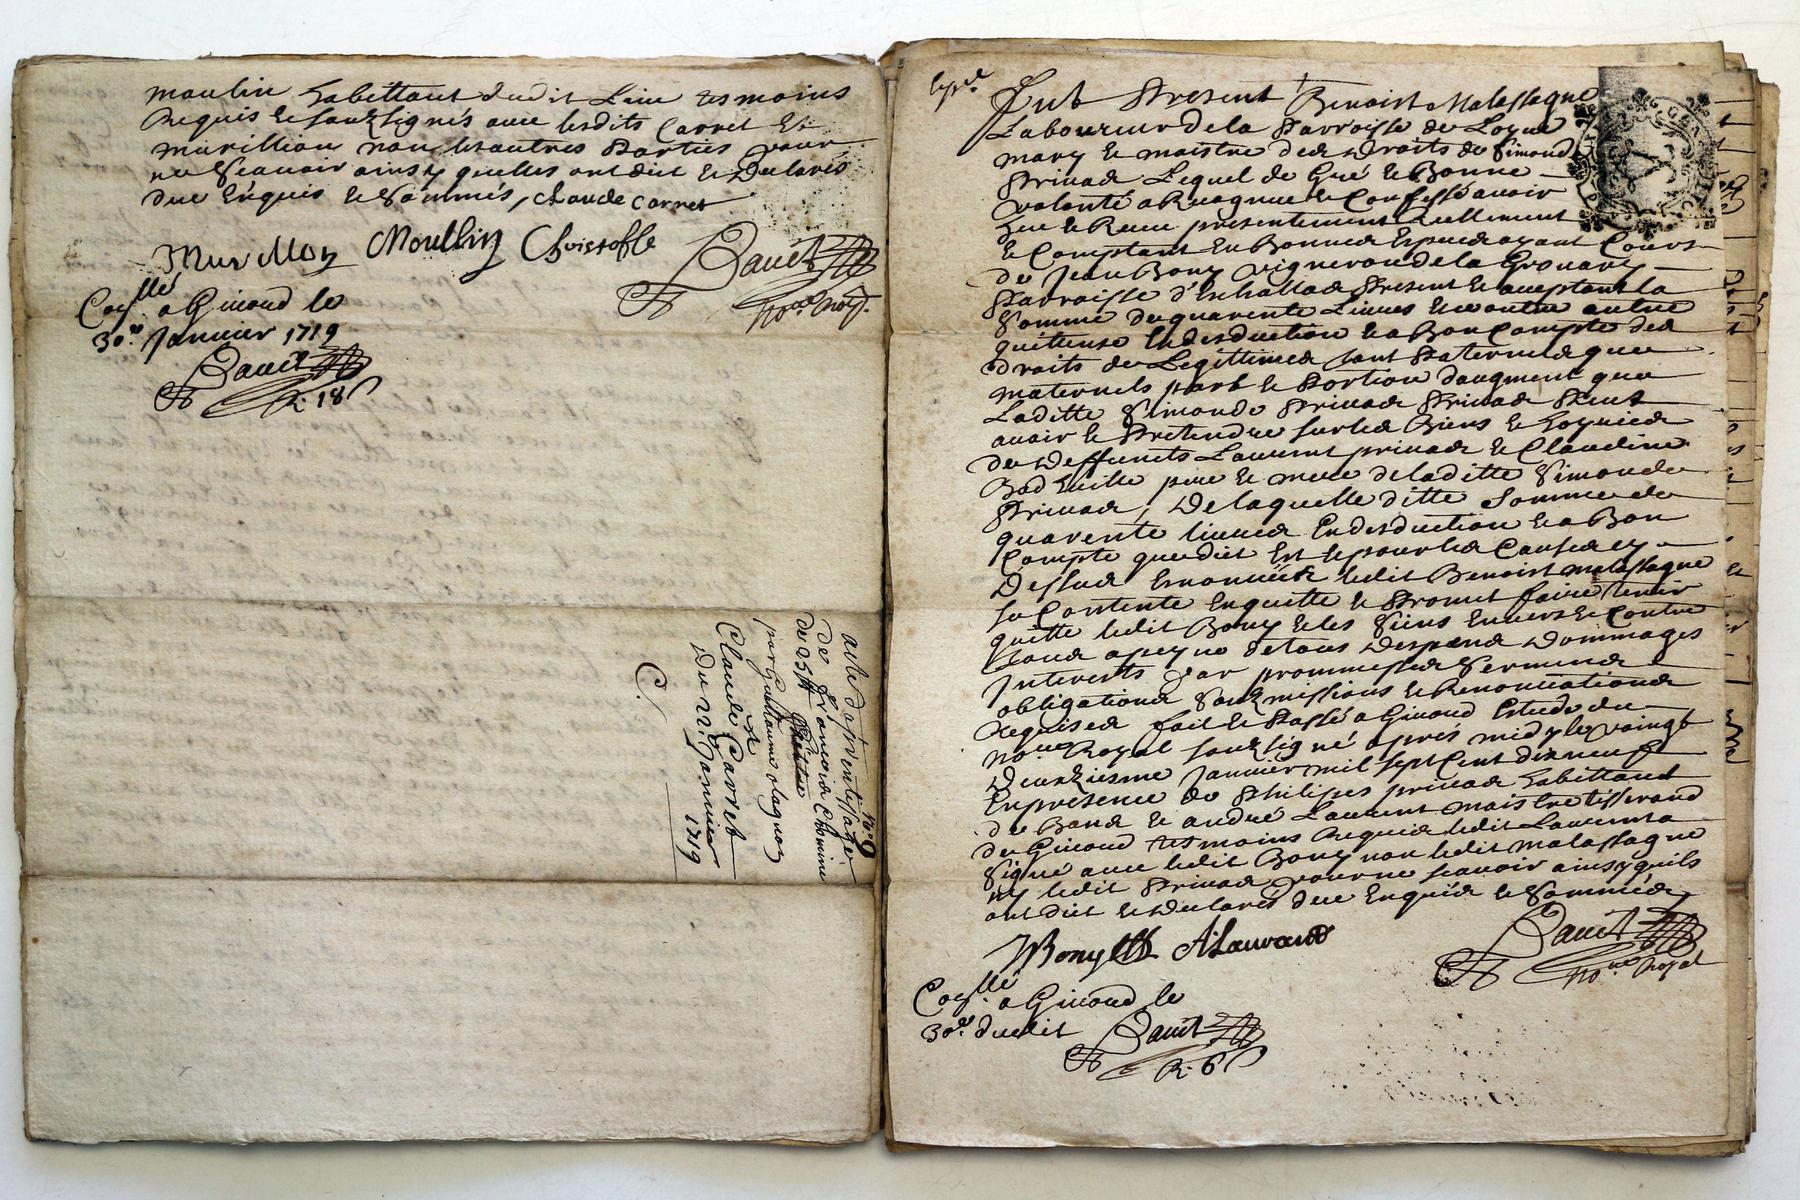 moulin habittant dudit Lieu tesmoins
Requis et soubsignés avec lesdits Carret Et
murillion non lesautres Parties pour
ne sçauoir ainsy quelles ont dit et Declarés
due Enquis et Sommés, claude carret
Murillon Moulliy Christofle
Dauit
no.re roy.
Coll.lé a Giuord le
30.e Januier 1719
Dauit
R. 18 s
N.o 9
acte daprentissage
de francois Chomine
de 95 ₶
par Guillaume olagnon
Claude Carret
Du 22.e Januier
1719
C.
exp.é
Fut Present Benoist Malassagne
Laboureur de la Parroisse de Loyre
mary et maistre des Droits de Simonde
Priuas Lequel de Gré et Bonne
volonté a Recognue et Confessé auoir
heu et Receu presentement Reellement
et Comptant En Bonnes Especes ayant Cours
de Jean Bony vigneron de la
Parroisse d'Echallas Present et acceptant la
Somme de quarente Liures et contre autre
quittense En desduction et a Bon Compte des
droits de Legittimes tant Paternels que
maternels part et Portion daugment que
Laditte Simonde Priuas Priuas Peut
auoir et Pretendre sur les Biens et hoyries
des Deffunts Laurent priuas et Claudine
pere et mere de laditte Simonde
Priuas, De laquelle ditte Somme de
quarente liures En desduction et a Bon
Compte que dict Est et pour les Causes cy
Dessus Enoncées ledit Benoist malassagne
se Contente En quitte et Promet faire tenir
quitte ledit Bony et les Siens Enuers et Contre
tous a peyne de tous Despens Dommages
Interests Par promesses Serments
obligations soubmissions et Renonciations
Requises fait et Passé a Giuord Estude du
no.re Royal soubsigné apres midy le vingt
Deuxiesme Januier mil sept Cent dixneuf
En presence de Philippes priuas habittant
de Bans et andré Laurent maistre tisserand
de Giuord tesmoins Requis ledit Laurent a
Signé auec ledit Bony non ledit malassagne
ny ledit Priuas pour ne scauoir ainsy quils
ont dict et Declarés due Enquis et Sommés,
JBony A Laurand
Dauit
no.re Royal
Coll.lé a Giuord le
30.e dudit Dauit
R. 6 s